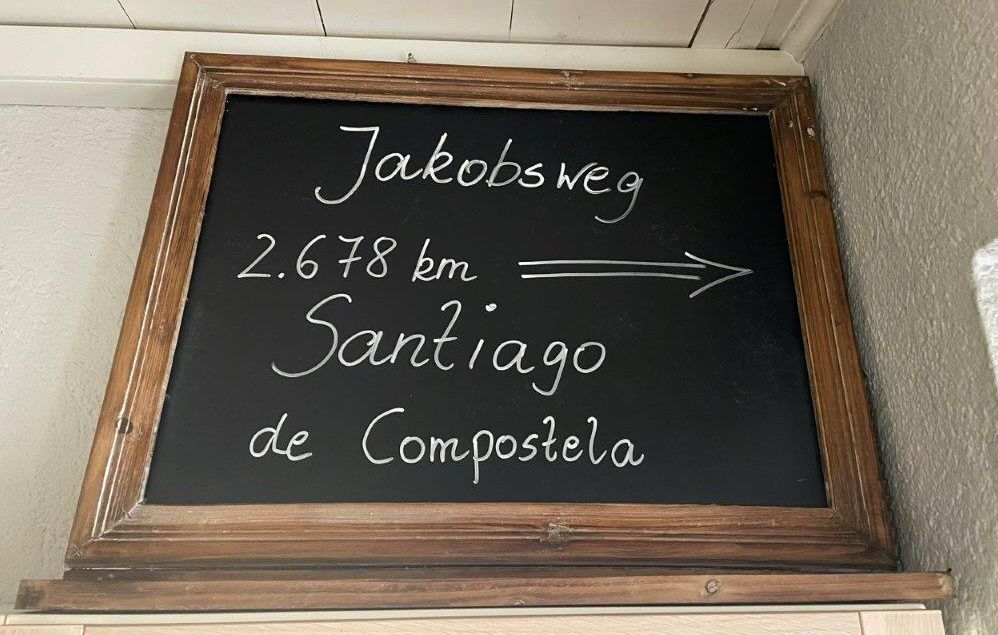 Jakobsweg
2.678 km
Santiago
de Compostela